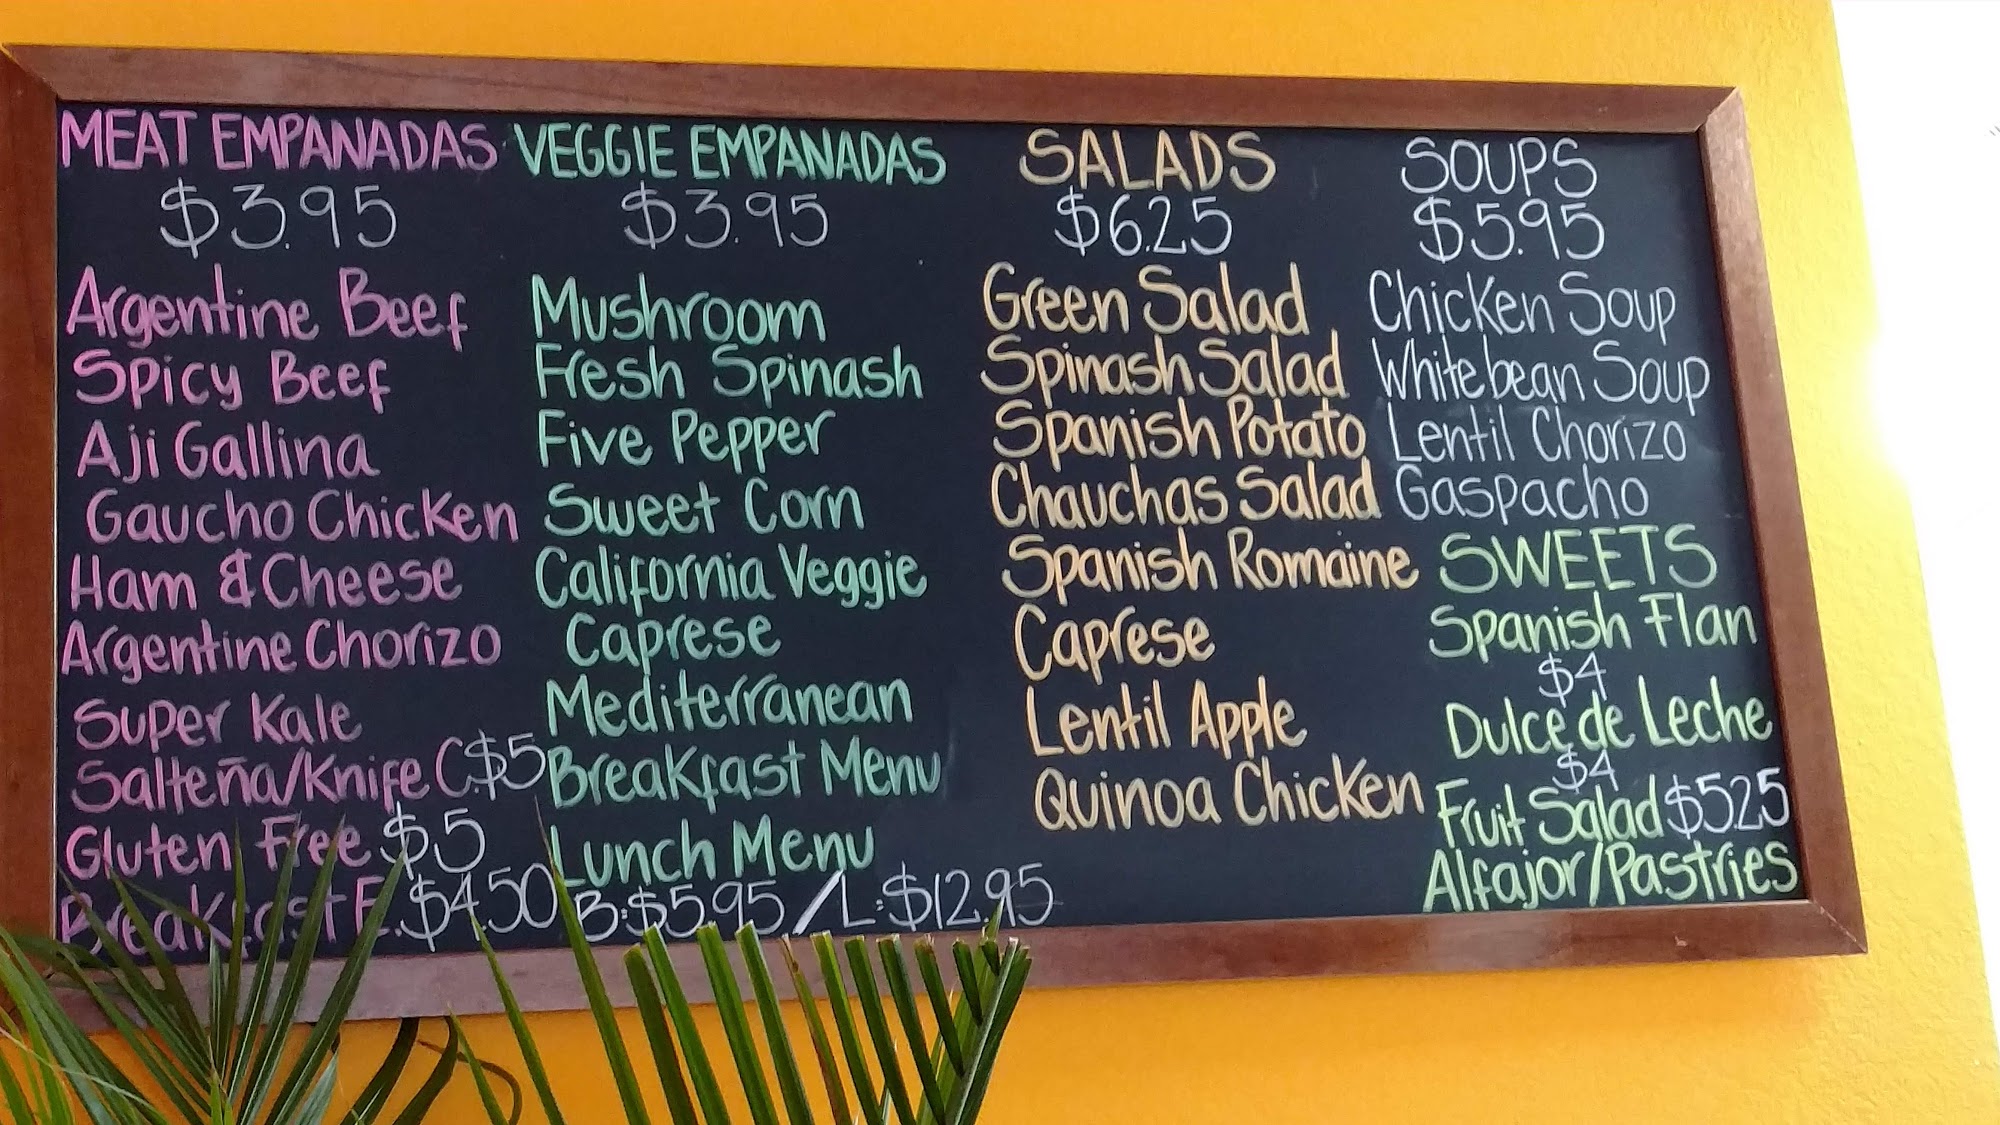 MEAT EMPANADAS
$3.95
Argentine Beef
Spicy Beef
Aji Gallina
Gaucho Chicken
Ham & Cheese
Argentine Chorizo
Super Kale
Salteña/Knife C.$5
Gluten Free $5
Breakfast E.$4.50
VEGGIE EMPANADAS
$3.95
Mushroom
Fresh Spinash
Five Pepper
Sweet Corn
California Veggie
Caprese
Mediterranean
Breakfast Menu
Lunch Menu
B:$5.95/L:$12.95
SALADS
$6.25
Green Salad
Spinash Salad
Spanish Potato
Chauchas Salad
Spanish Romaine
Caprese
Lentil Apple
Quinoa Chicken
SOUPS
$5.95
Chicken Soup
White bean Soup
Lentil Chorizo
Gaspacho
SWEETS
Spanish Flan
$4
Dulce de Leche
$4
Fruit Salad $5.25
Alfajor/Pastries